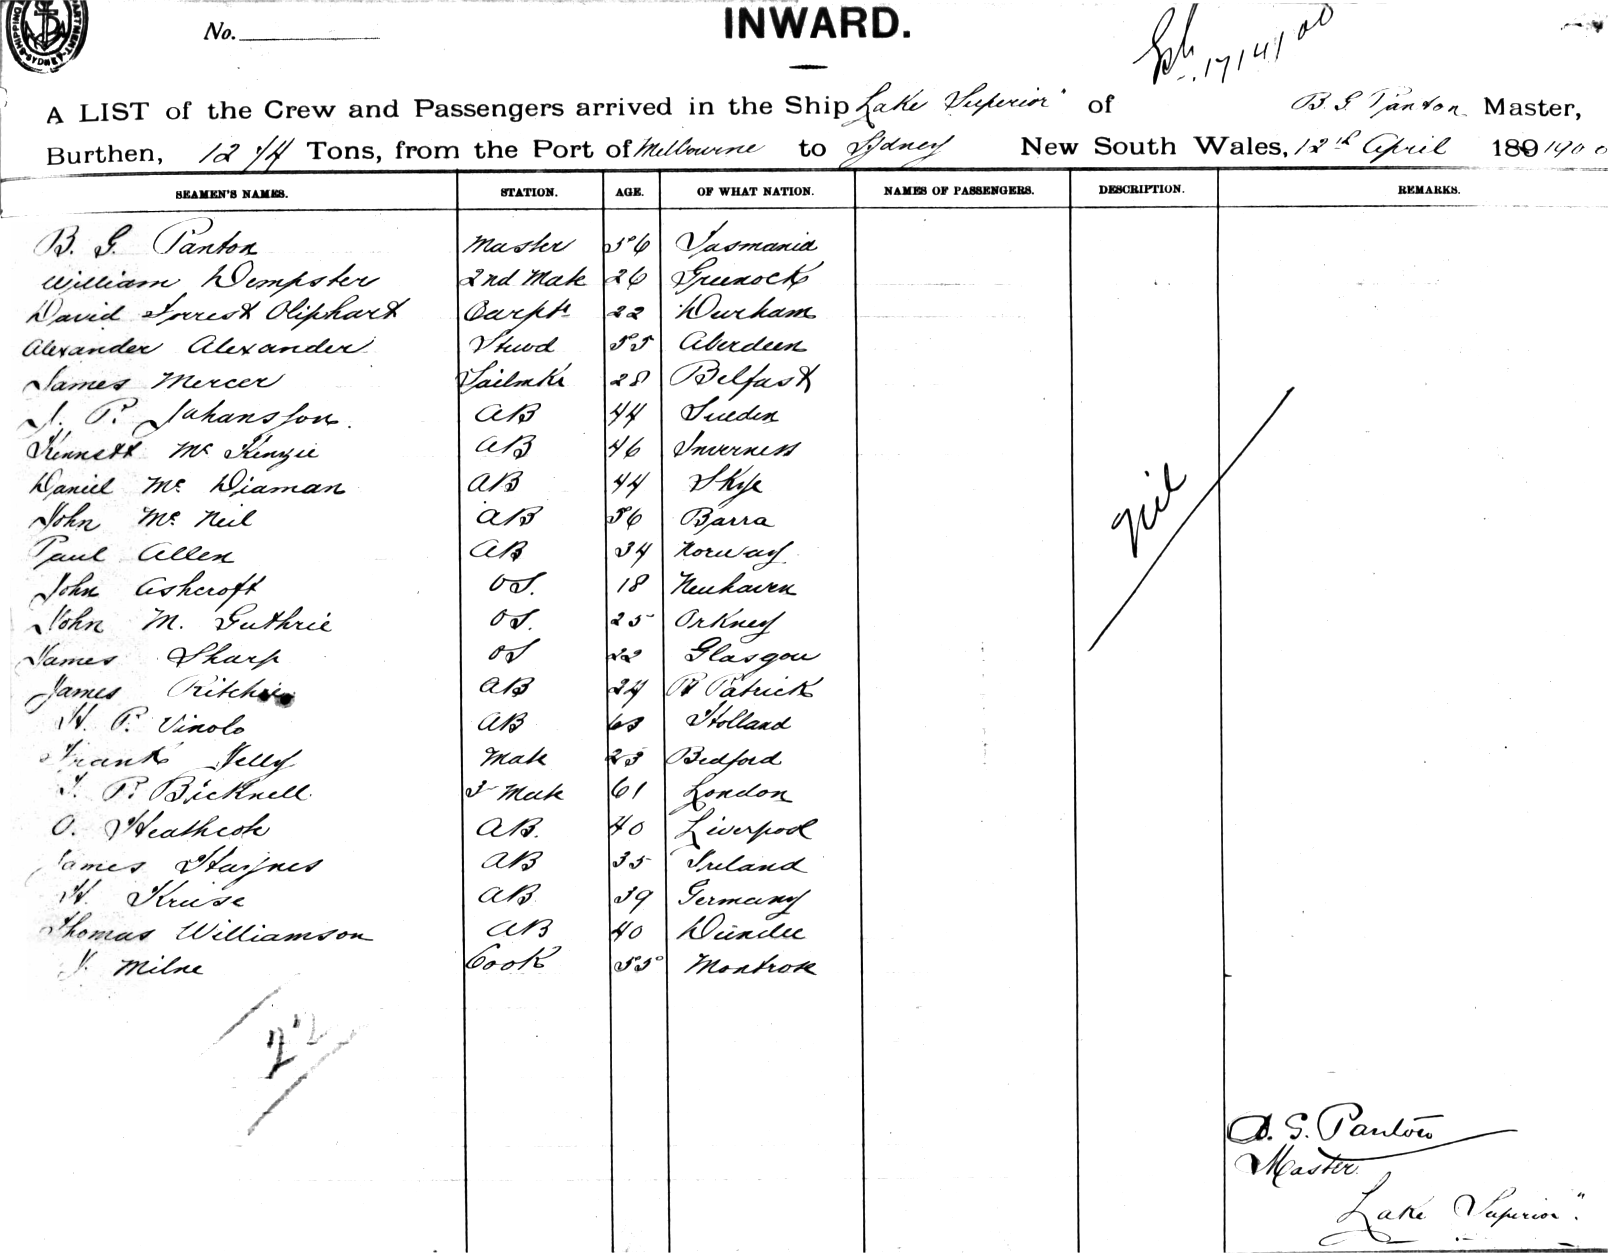 No.
INWARD.
17/4/00
A LIST of the Crew and Passengers arrived in the Ship Lake Superior" of B. G. Panton Master,
Burthen, 1274 Tons, from the Port of Melbourne to Sydney New South Wales, 12th April 1890 1900
SEAMEN'S NAMES. STATION. AGE. OF WHAT NATION. NAMES OF PASSENGERS. DESCRIPTION. REMARKS.
B. G. Panton Master 56 Tasmania
William Dempster 2nd Mate 26 Greenock
David Forrest Oliphart Carptr 22 Durham
Alexander Alexander Stuwd 55 Aberdeen
James Mercer Sailmkr 28 Belfast
J. P. Johansson. AB 44 Sueden
Kennett Mc Kenzie AB 46 Inverness
Daniel Mc Diaman AB 44 Skye
John Mc Neil AB 56 Barra
Paul Allen AB 34 Norway
John Ashcroft OS. 18 Neuhaven
John M. Guthrie OS. 25 Orkney
James Sharp OS 22 Glasgou
James Ritchie AB 24 Pt Patrick
H. P. Vinolo AB Holland
Frank Kelly Mate 23 Bedford
Nil
T. P. Bicknell 3 Mate 61 London
O. Heathcote AB. 40 Liverpool
James Haynes AB 35 Ireland
H. Kruse AB. 39 Germany
Thomas Williamson AB 40 Dundee
J. Milne Cook 55 Montrose
22
B. G. Panton
Master
Lake Superior".